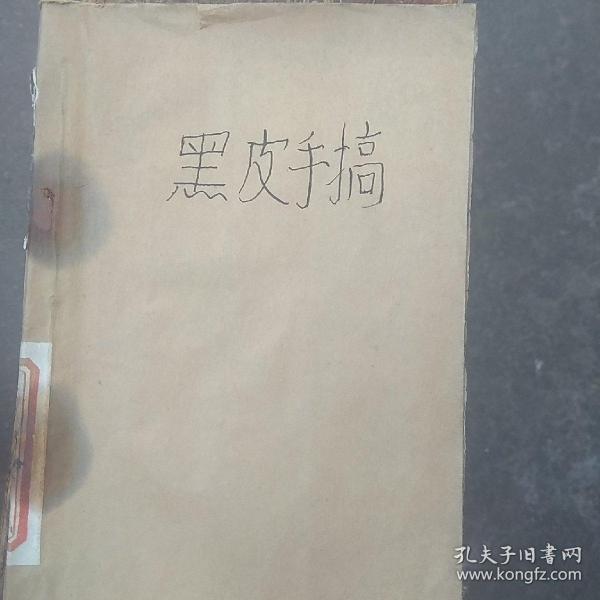 黑皮手搞
孔夫子旧書网
www.kongfz.com